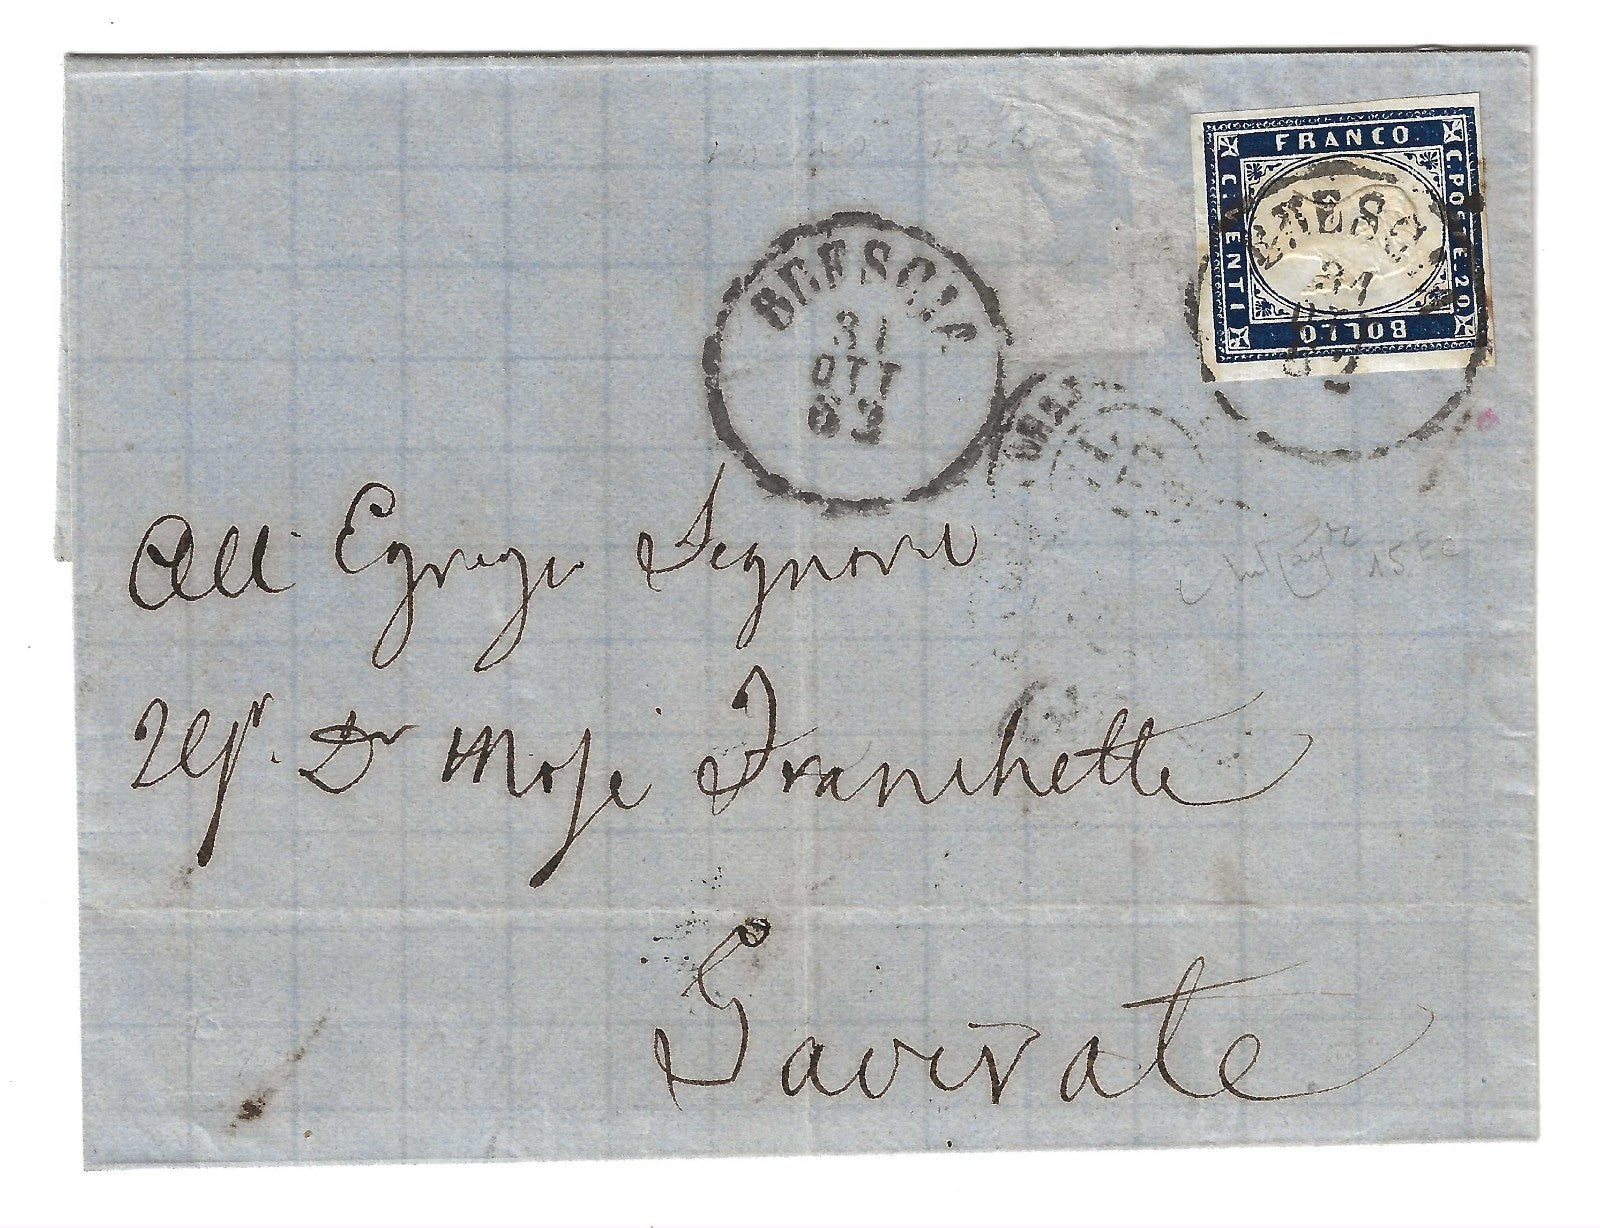 FRANCO
C. POSTE. 20
BOLLO
C. VENTI
BRESCIA
31
OTT
62
BRESCIA
31
OTT
62
All Egregio Signore
Dr Mosè Franchette
Gavirate
15Ec